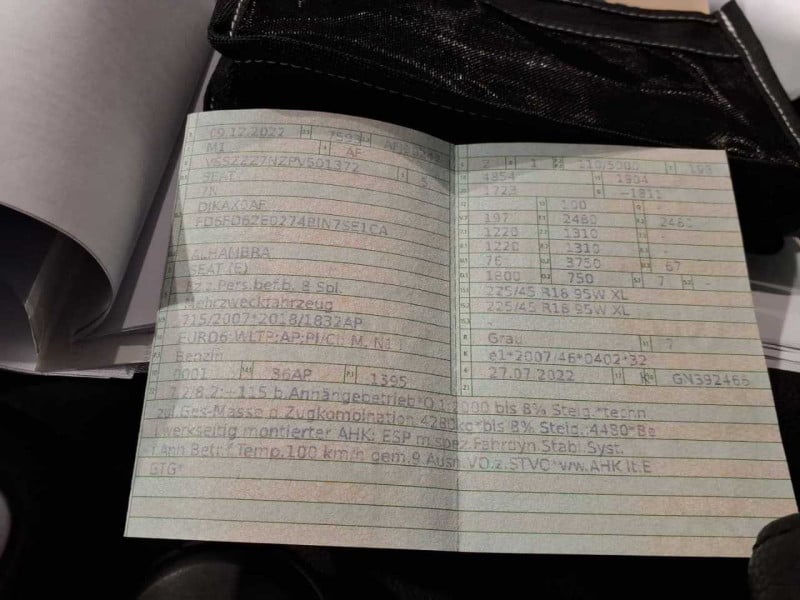 09.12.2022 7593
M1 AF
VSSZZZ7NZPV501372 5
SEAT
7N
ALHAMBRA
SEAT (E)
Fz.z.Pers.bef.b. 8 Spl.
Mehrzweckfahrzeug
715/2007*2018/1832AP
EURO6 WLTP;AP;PI/CI; M, N1
Benzin
0001 36AP 1395
2 1 110/5000 198
4854 1904
1723 -1811
100
197 2480 2480
1220 1310 -
1220 1310 -
76 3750 67
1800 750 7 -
225/45 R18 95W XL
225/45 R18 95W XL
Grau 7
e1*2007/46*0402*32
27.07.2022 GN392465
7.2/8.2:+115 b.Anhängebetrieb*O.1:2000 bis 8% Steig.*techn
zul.Ges-Masse d.Zugkombination 4280kg*bis 8% Steig.:4480*Be
i.werkseitig montierter AHK: ESP m.spez.Fahrdyn.Stabi.Syst.
f.Ann.Betr.f.Temp.100 km/h gem.9.Ausn.VO.z.STVO*ww.AHK lt.E
GTG*